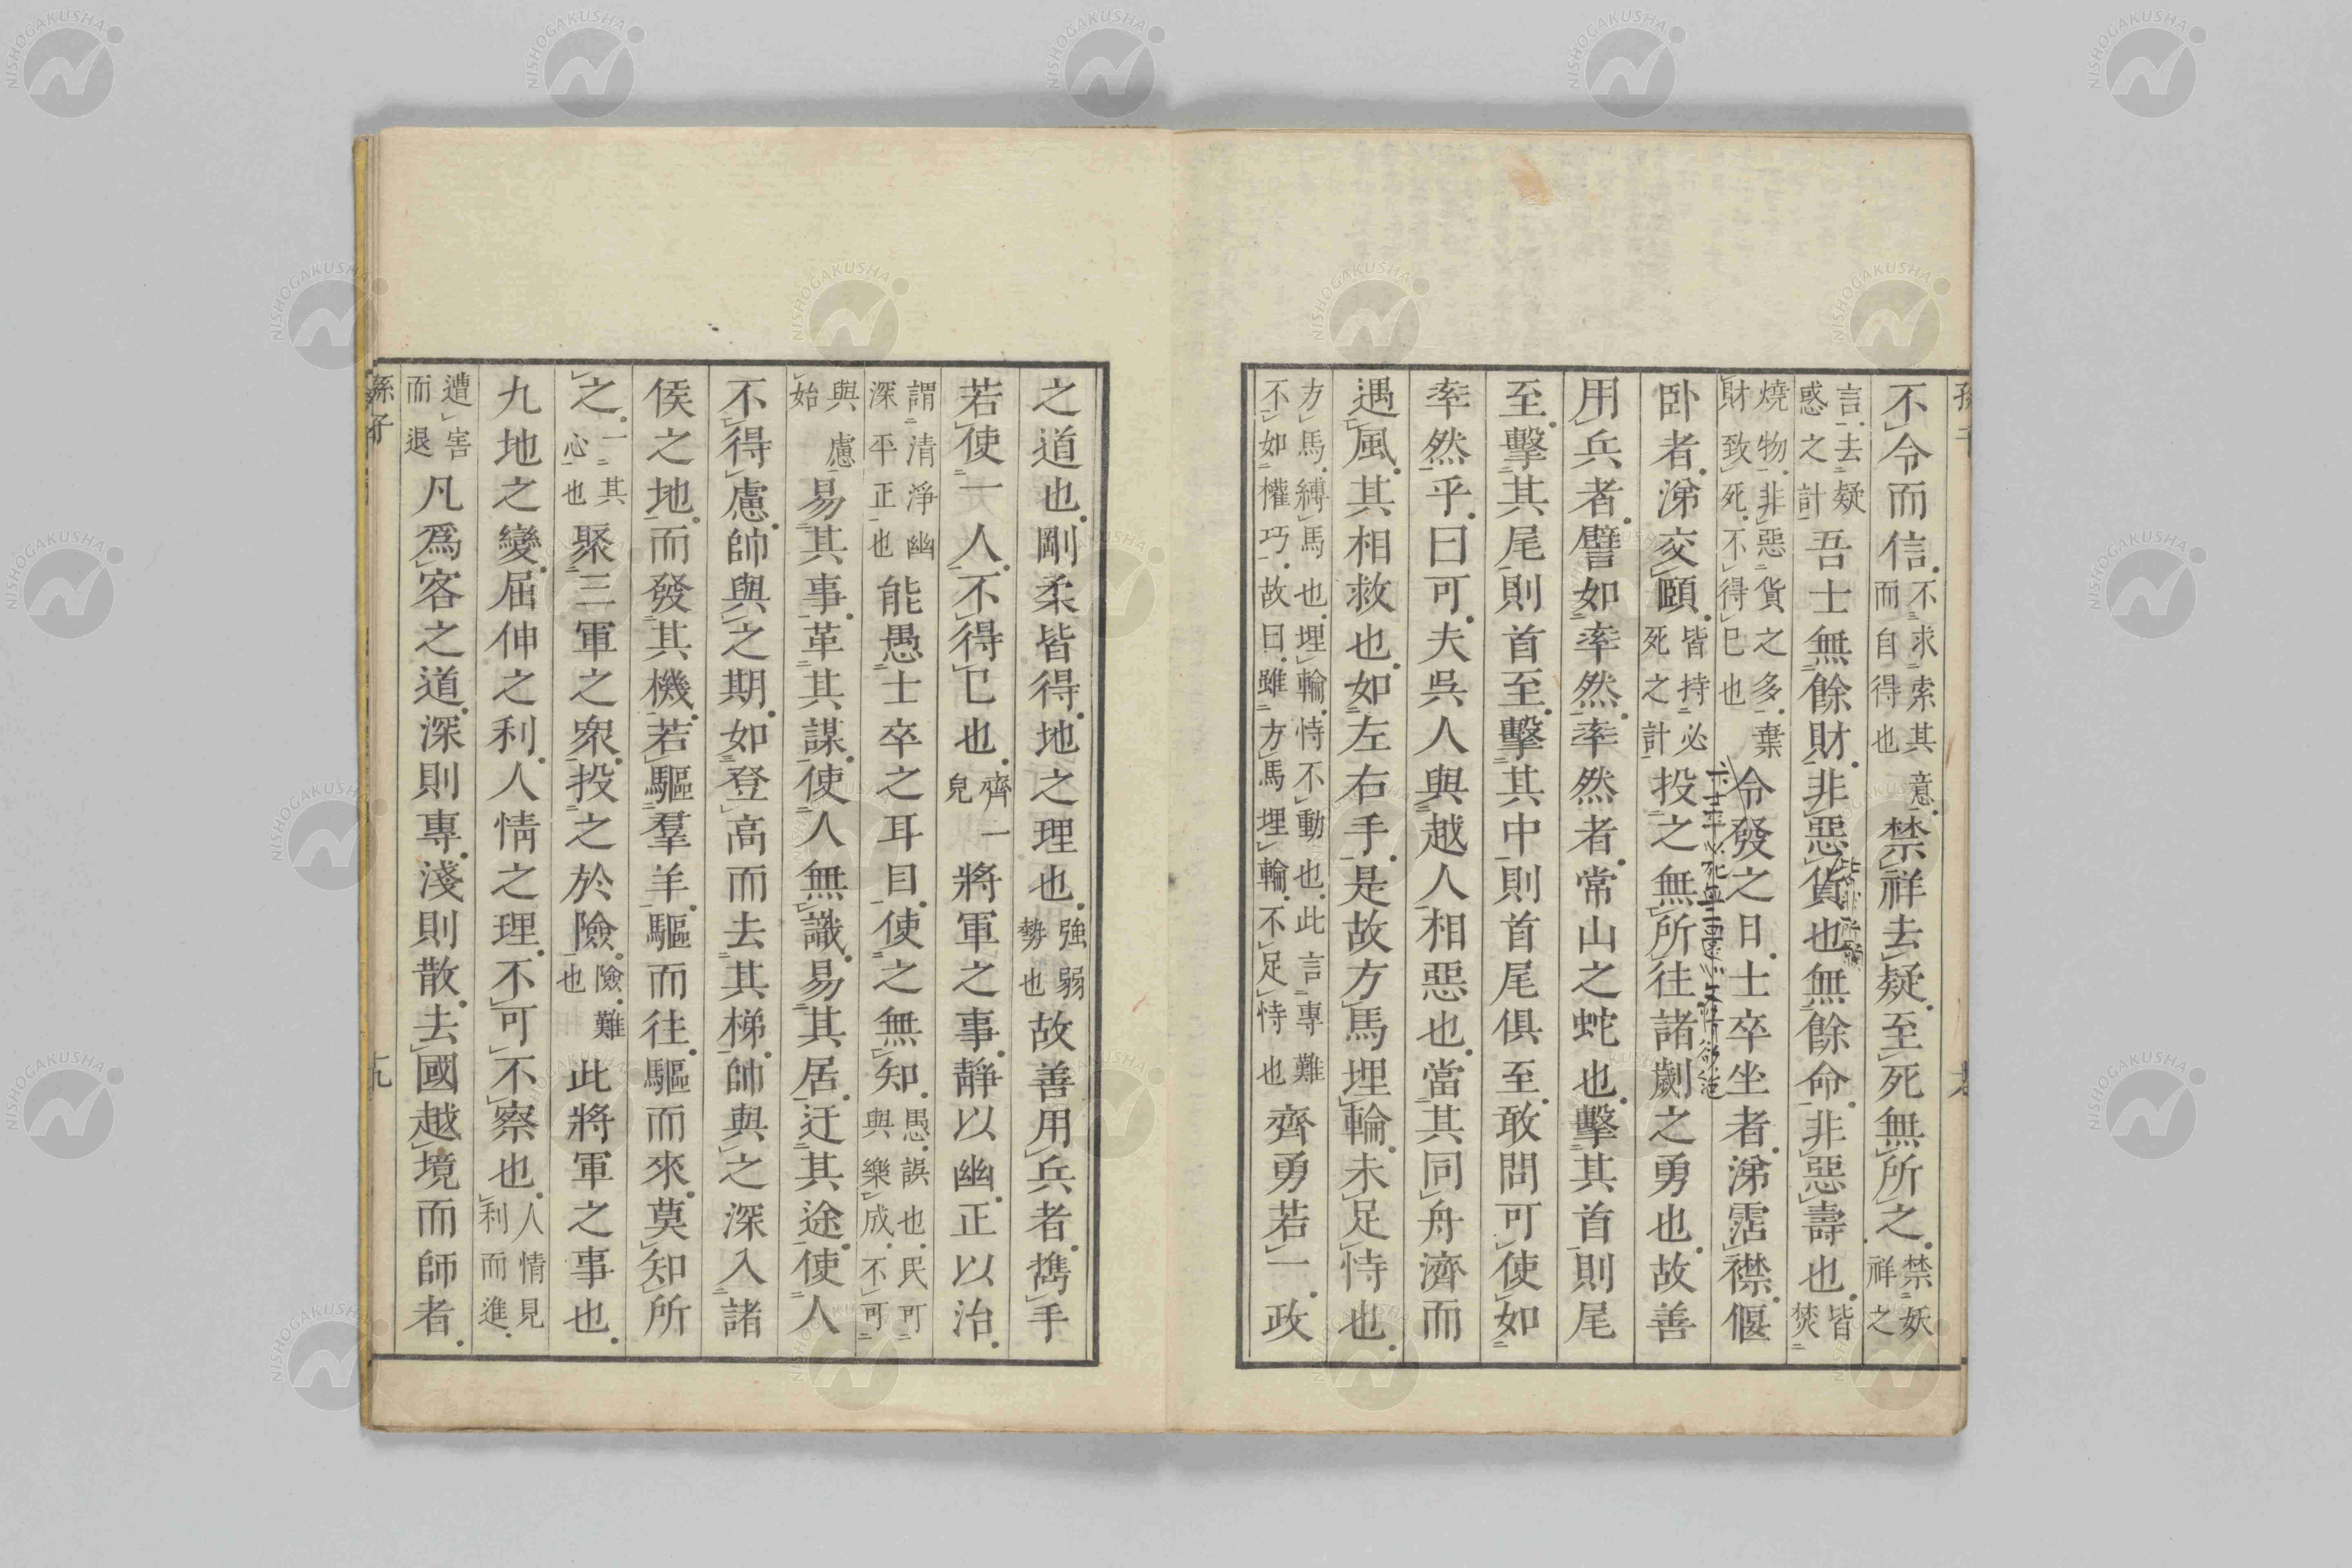 不令而信不求索其意而自得也禁祥去疑至死無所之禁妖祥之
言去疑惑之計吾士無餘財非惡貨也無餘命非惡壽也皆焚
燒物非惡貨之多棄財致死不得已也令發之日士卒坐者涕霑襟偃
卧者涕交頤皆持必死之計投之無所往諸劌之勇也故善
用兵者譬如率然率然者常山之蛇也擊其首則尾
至擊其尾則首至擊其中則首尾俱至敢問可使如
率然乎曰可夫吳人與越人相惡也當其同舟濟而
遇風其相救也如左右手是故方馬埋輪未足恃也
方馬縛馬也埋輪恃不動也此言專難不如權巧故曰雖方馬埋輪不足恃也齊勇若一政
之道也剛柔皆得地之理也強弱勢也故善用兵者攜手
若使一人不得已也齊一皃將軍之事静以幽正以治
謂清淨幽深平正也能愚士卒之耳目使之無知愚誤也民可與樂成不可
與慮始易其事革其謀使人無識易其居迂其途使人
不得慮帥與之期如登高而去其梯帥與之深入諸
侯之地而發其機若驅羣羊驅而往驅而來莫知所
之一其心也聚三軍之衆投之於險險難也此將軍之事也
九地之變屈伸之利人情之理不可不察也人情見利而進
遭害而退凡爲客之道深則專淺則散去國越境而師者
孫子
十九
NISHOGAKUSHA